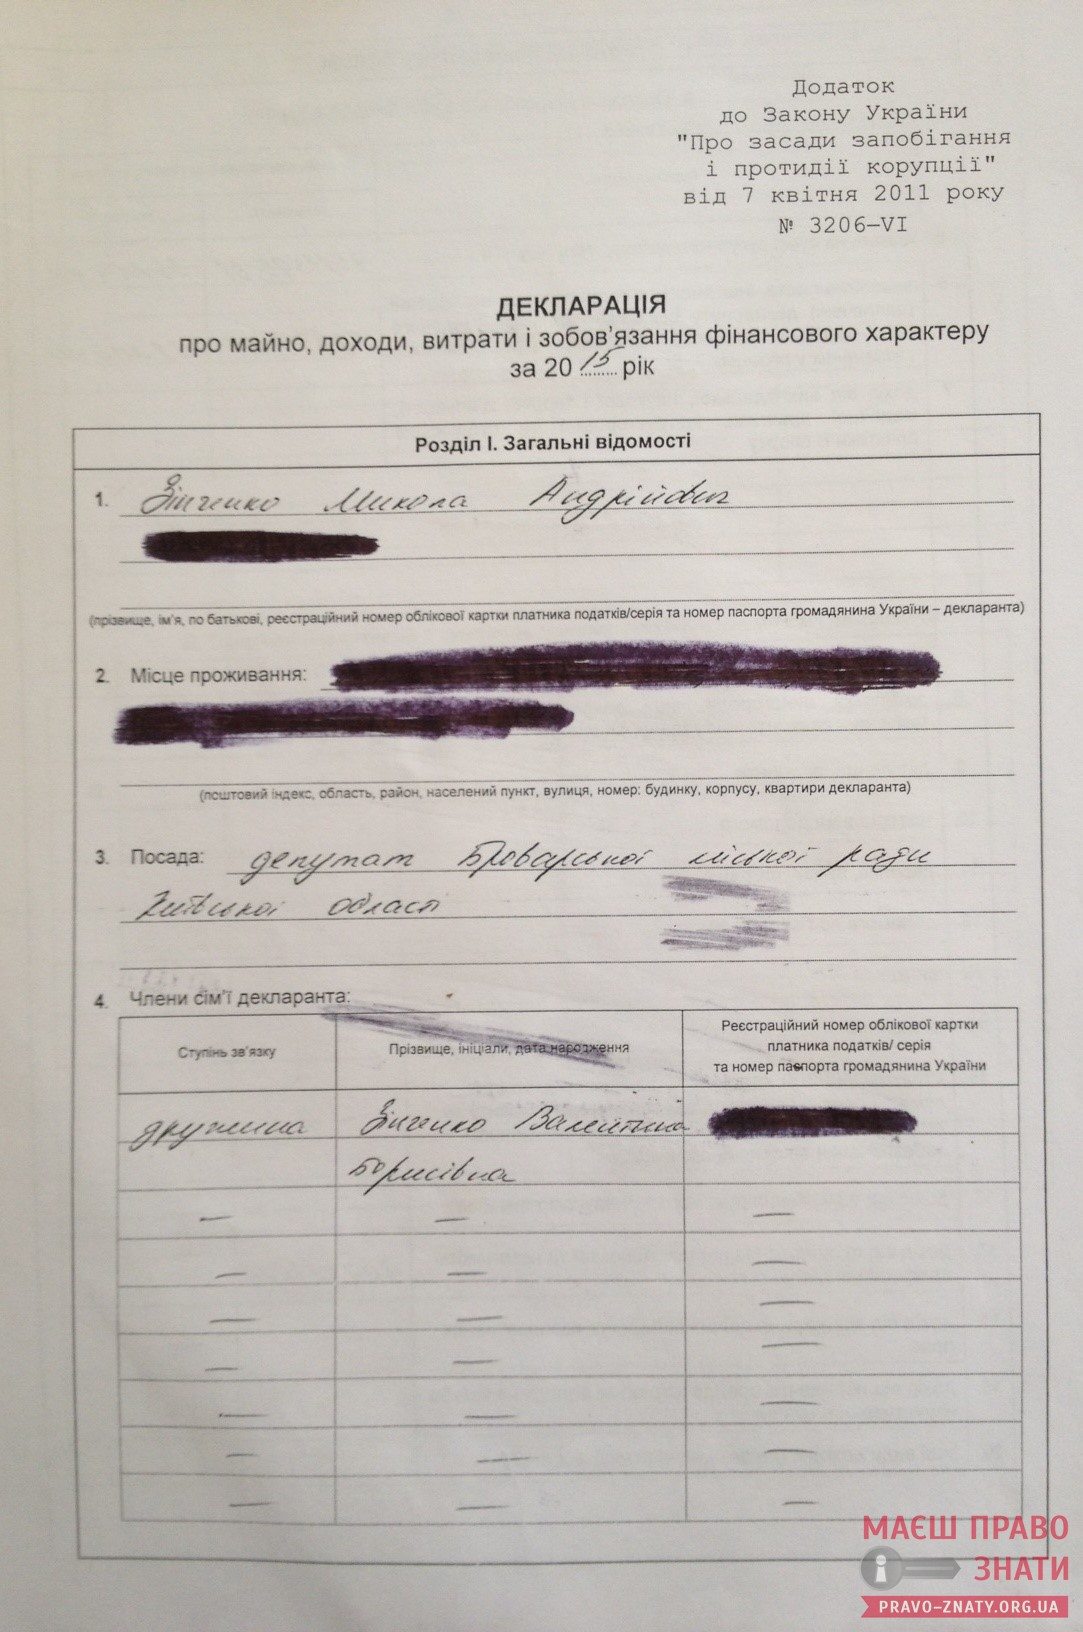 Додаток
до Закону України
"Про засади запобігання
і протидії корупції"
від 7 квітня 2011 року
№ 3206–VI
ДЕКЛАРАЦІЯ
про майно, доходи, витрати і зобов’язання фінансового характеру
за 2015 рік
Розділ I. Загальні відомості
1. Зінченко Микола Андрійович
(прізвище, ім’я, по батькові, реєстраційний номер облікової картки платника податків/серія та номер паспорта громадянина України – декларанта)
2. Місце проживання:
(поштовий індекс, область, район, населений пункт, вулиця, номер: будинку, корпусу, квартири декларанта)
3. Посада: депутат Броварської міської ради
Київської області
4. Члени сім’ї декларанта:
Ступінь зв’язку
Прізвище, ініціали, дата народження
Реєстраційний номер облікової картки
платника податків/ серія
та номер паспорта громадянина України
дружина Зінченко Валентина
Борисівна
— — —
— — —
— — —
— — —
— — —
— — —
— — —
МАЄШ ПРАВО
ЗНАТИ
PRAVO-ZNATY.ORG.UA